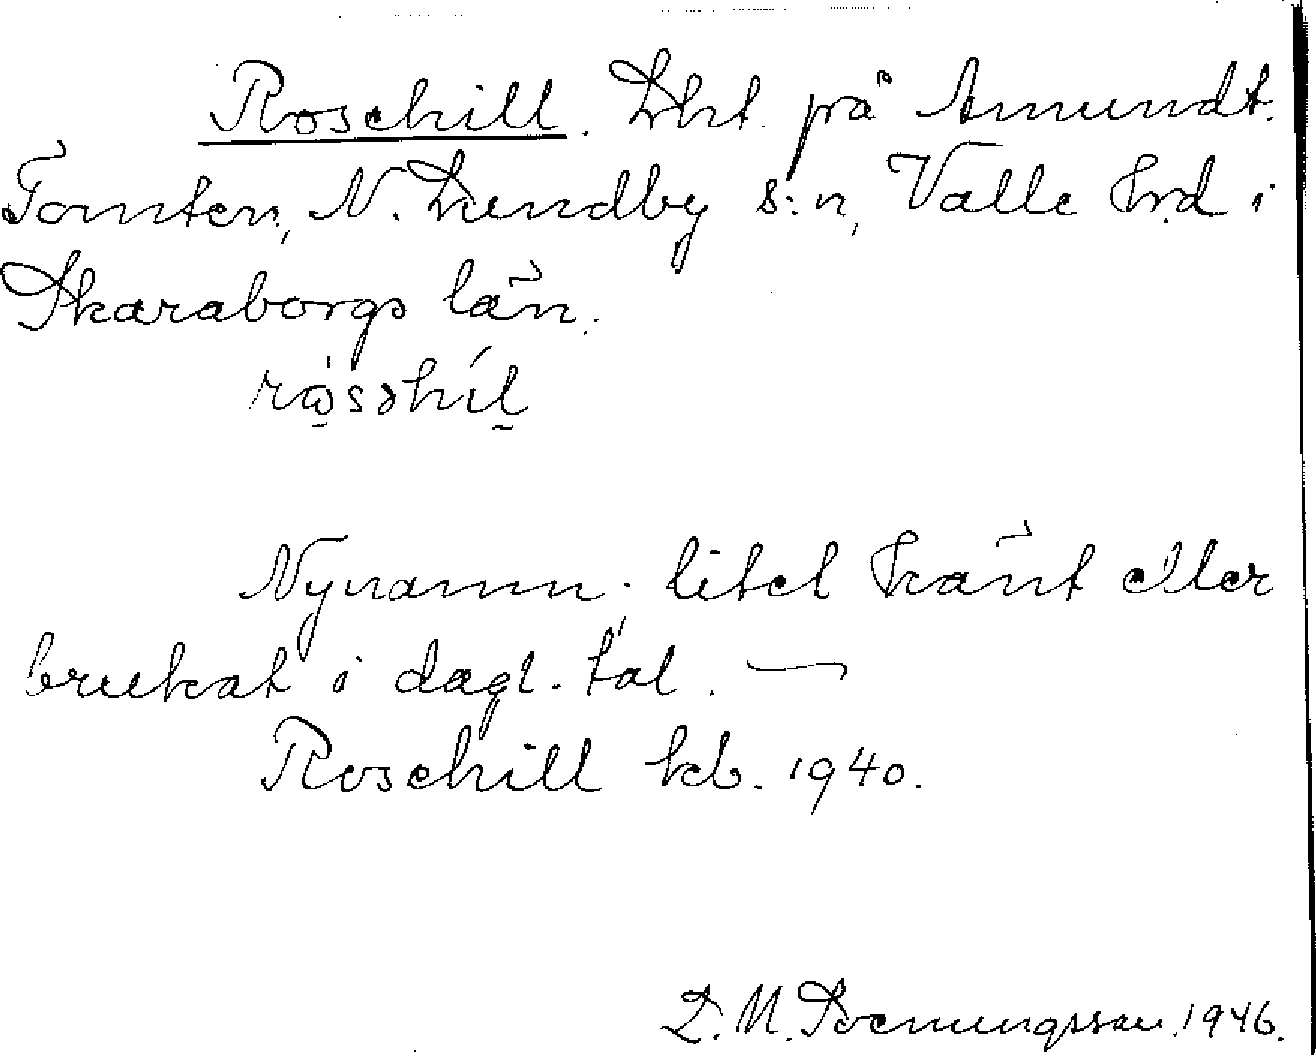 Rosehill. Lht. på Amundt.
Tomten, N. Lundby s:n, Valle hrd i
Skaraborgs län.
Nynamn; litet känt eller
brukat i dagl. tal. —
Rosehill kb. 1940.
1946.